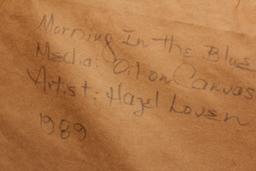 Morning In the Blue
Media: Oil on Canvas
Artist: Hazel Loven
1989